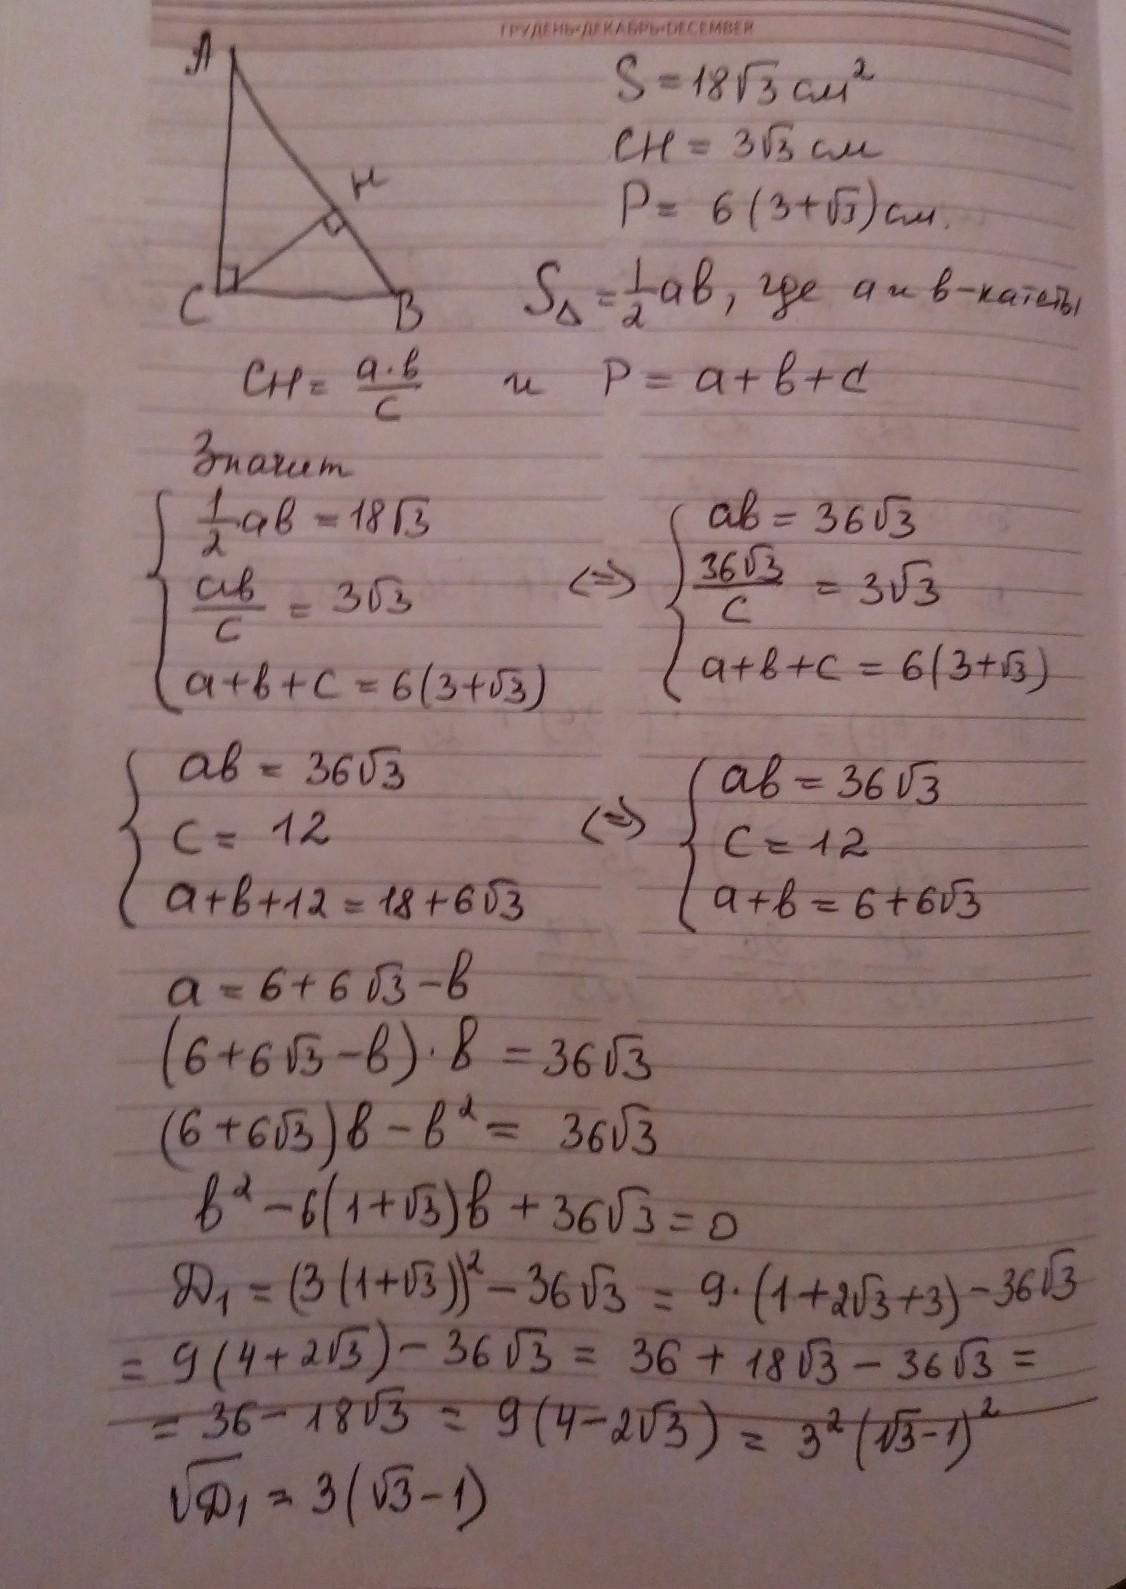 ГРУДЕНЬ•ДЕКАБРЬ•DECEMBER
A
H
C
B
S = 18√3 см²
CH = 3√3 см
P = 6(3+√3) см.
S△ = 1/2 ab, где a и b - катеты
CH = a·b/c и P = a+b+c
Значит
{ 1/2 ab = 18√3
ab/c = 3√3
a+b+c = 6(3+√3)
<=> { ab = 36√3
36√3/c = 3√3
a+b+c = 6(3+√3)
{ ab = 36√3
c = 12
a+b+12 = 18+6√3
<=> { ab = 36√3
c = 12
a+b = 6+6√3
a = 6+6√3-b
(6+6√3-b)·b = 36√3
(6+6√3)b-b² = 36√3
b²-6(1+√3)b+36√3=0
D₁ = (3(1+√3))²-36√3 = 9·(1+2√3+3)-36√3
= 9(4+2√3)-36√3 = 36+18√3-36√3 =
= 36-18√3 = 9(4-2√3) = 3²(√3-1)²
√D₁ = 3(√3-1)